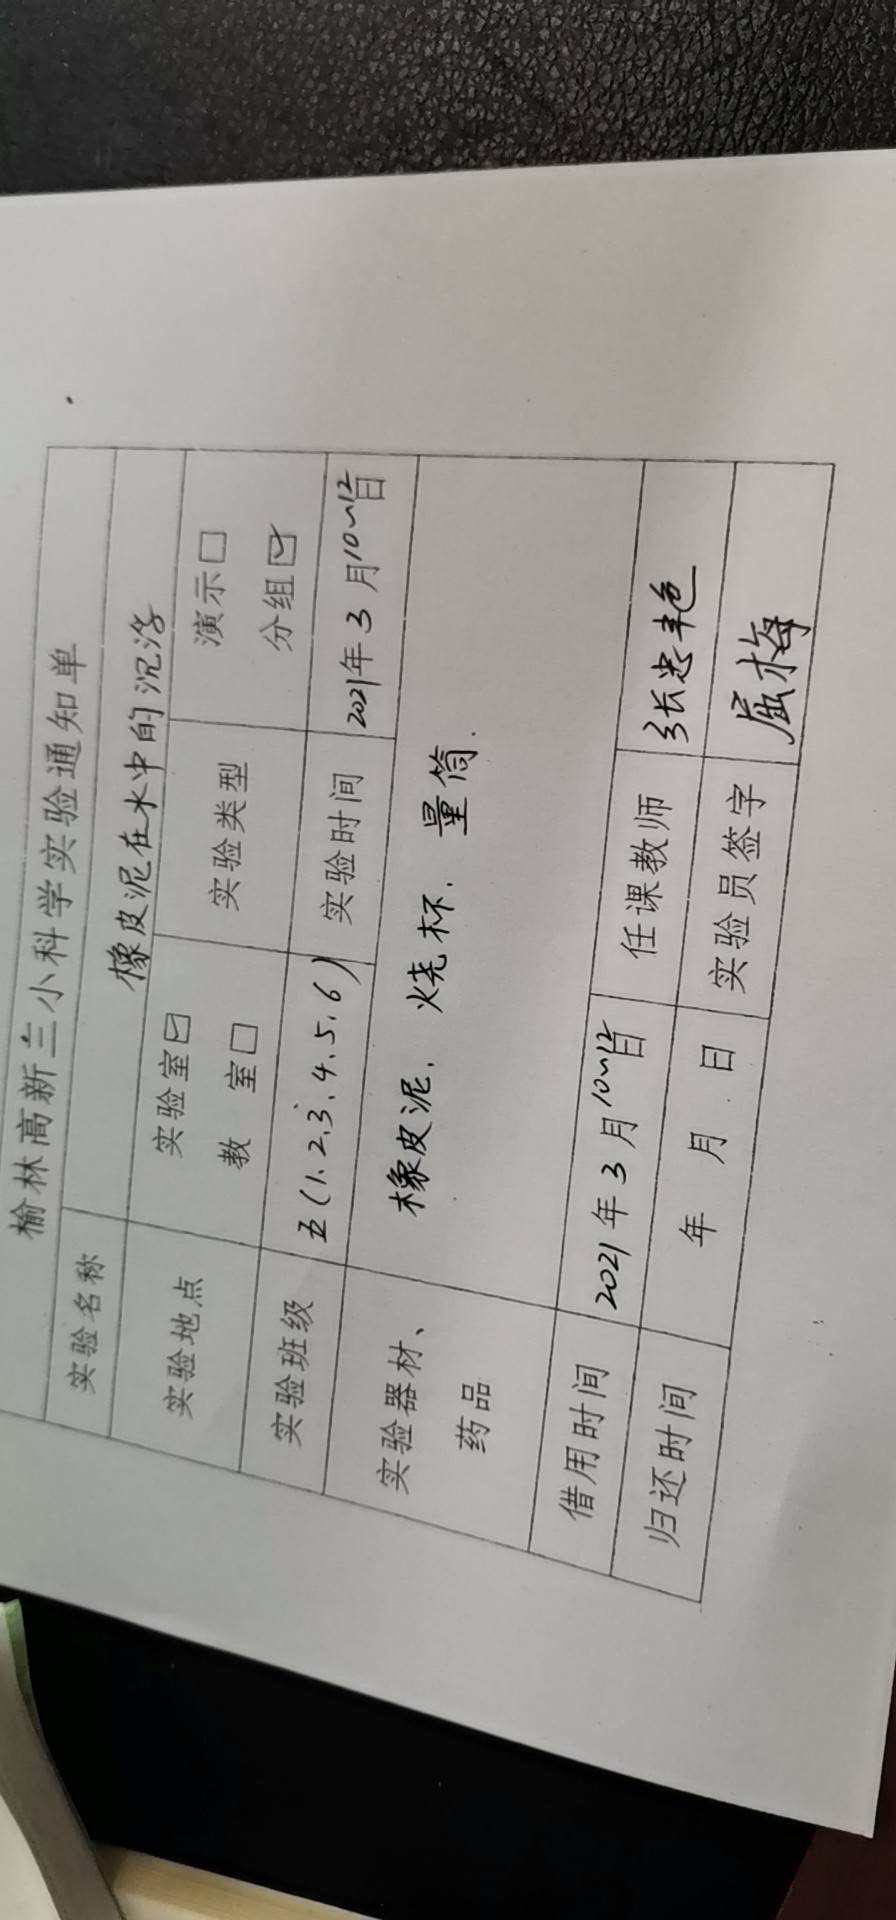 榆林高新三小科学实验通知单
实验名称 橡皮泥在水中的沉浮
实验地点 实验室☑ 教 室□ 实验类型 演示□ 分组☑
实验班级 五(1、2、3、4、5、6) 实验时间 2021年3月10~12日
实验器材、药品 橡皮泥、烧杯、量筒.
借用时间 2021年3月10~12日 任课教师 张忠艳
归还时间 年 月 日 实验员签字 屈梅